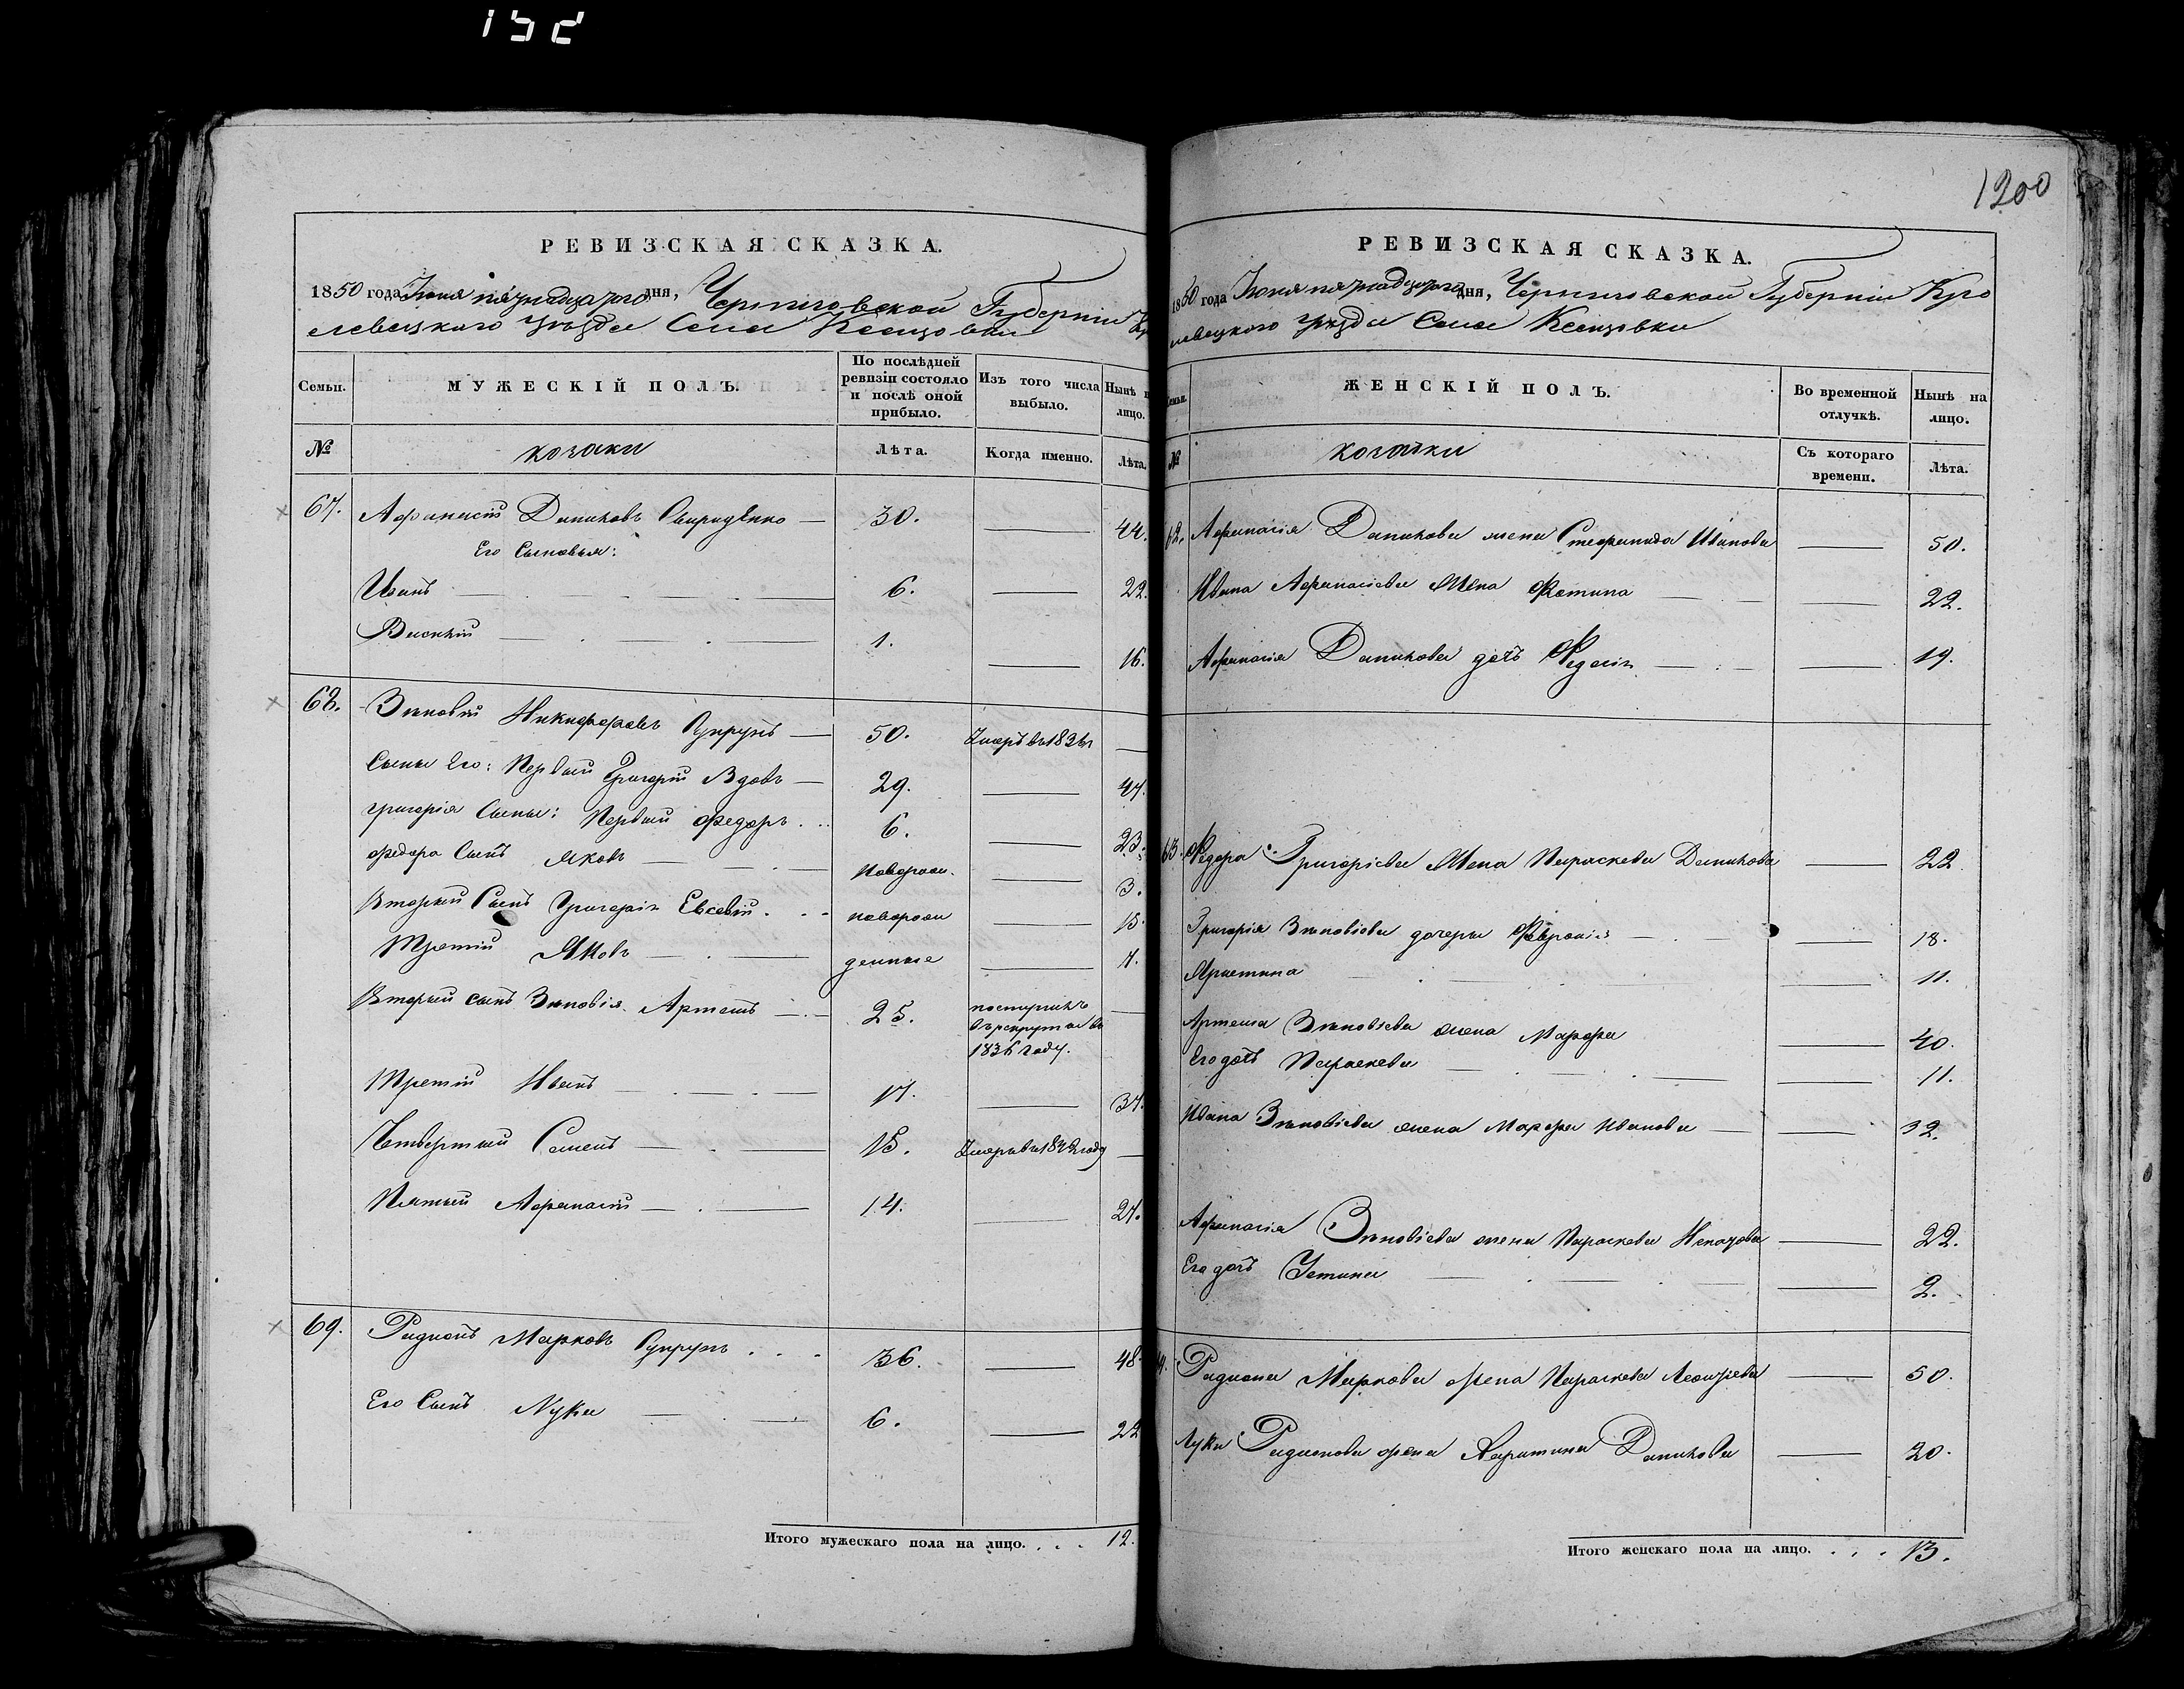 152
1200
РЕВИЗСКАЯ СКАЗКА.
1850 года Іюня пятнадцатого дня, Черниговской Губерніи Кро
левецкого уѣзда Села Ксензовки
Семьи. МУЖЕСКІЙ ПОЛЪ. По послѣдней ревизіи состояло и послѣ оной прибыло. Изъ того числа выбыло. Нынѣ на лицо.
№ козаки Лѣта. Когда именно. Лѣта.
67. Афанасій Даниловъ Свириденко — 30. — 44.
Его Сыновья:
Иванъ — 6. — 22.
Василій — 1. — 16.
68. Зѣновій Никифоровъ Супрунъ — 50. Умеръ въ —
Сыны Его: Первый Григорій Вдовъ — 29. — 47.
Григорія Сыны: Первый Федоръ 6. — 23.
Федора Сынъ Яковъ — новорож. — 3.
Вторый Сынъ Григорія Евсевій новорож — 15.
Третій Яковъ — денные — 7.
Вторый сынъ Зѣновія Артемъ — 25. поступилъ —
въ рекруты въ
1836 году.
Третій Иванъ — 17. — 37.
Четвертый Семенъ — 15. Умеръ въ 1842 году —
Пятый Афанасій — 14. — 27.
69. Радионъ Марковъ Супрунъ 36. — 48.
Его Сынъ Лука — 6. — 22
Итого мужескаго пола на лицо. . . . 12.
РЕВИЗСКАЯ СКАЗКА.
1850 года Іюня пятнадцатого дня, Черниговской Губерніи Кро
левецкого уѣзда Села Ксензовки
Семьи. ЖЕНСКІЙ ПОЛЪ. Во временной отлучкѣ. Нынѣ на лицо.
№ козачки Съ котораго времени. Лѣта.
62. Афанасія Данилова жена Стефанида Иванова — 50.
Ивана Афанасіева жена Фотина — 22.
Афанасія Данилова дочь — 19.
63. Федора Григоріева жена Параскева Данилова — 22.
Григорія Зѣновіева дочери Февронія — 18.
Христина — 11.
Артема Зѣновіева жена Марфа — 40.
Его дочь Параскева — 11.
Ивана Зѣновіева жена Марфа Иванова — 32.
Афанасія Зѣновіева жена Параскева — 22.
Его дочь Устина — 2.
64. Радиона Маркова жена Параскева Леонтіева — 50.
Луки Радионова жена Харитина Данилова — 20.
Итого женскаго пола на лицо. . . . 13.